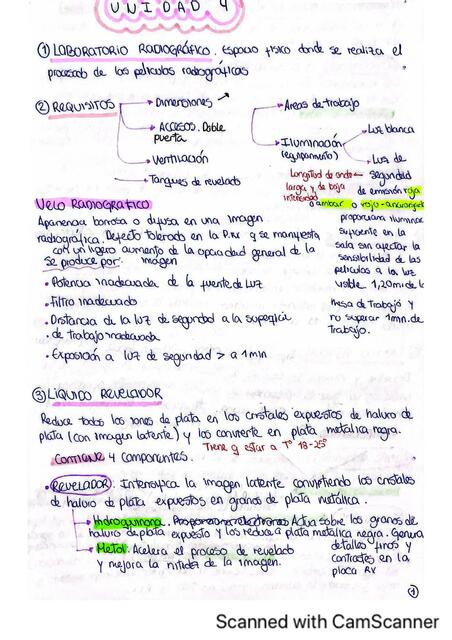 UNIDAD 4
① LABORATORIO RADIOGRÁFICO. Espacio físico donde se realiza el
procesado de las películas radiográficas
② REQUISITOS
Dimensiones
ACCESOS. Doble
puerta
Ventilación
Tanques de revelado
Áreas de trabajo
Iluminación
(equipamiento)
Luz blanca
Luz de
seguridad
Longitud de onda
larga y de baja
intensidad
de emisión roja
o ambar o rojo-anaranjada
proporciona iluminac
suficiente en la
sala sin afectar la
sensibilidad de las
películas a la luz
visible 1,20m de la
mesa de trabajo y
no superar 1min. de
trabajo.
VELO RADIOGRÁFICO
Apariencia borrosa o difusa en una imagen
radiográfica. Defecto tolerado en la R.x q se manifiesta
con un ligero aumento de la opacidad general de la
imagen
Se produce por:
• Potencia inadecuada de la fuente de luz
• Filtro inadecuado
• Distancia de la luz de seguridad a la superficie
• de trabajo inadecuada
• Exposición a luz de seguridad > a 1min
③ LÍQUIDO REVELADOR
Reduce todos los iones de plata en los cristales expuestos de haluro de
plata (con imagen latente) y los convierte en plata metálica negra.
Tiene q estar a T° 18-25°
Contiene 4 componentes.
• REVELADOR: Intensifica la imagen latente convirtiendo los cristales
de haluro de plata expuestos en granos de plata metálica.
Hidroquinona. Proporciona electrones Actúa sobre los granos de
haluro de plata expuesto y los reduce a plata metálica negra. Genera
detalles finos y
contrastes en la
placa Rx
Metol: Acelera el proceso de revelado
y mejora la nitidez de la imagen.
①
Scanned with CamScanner